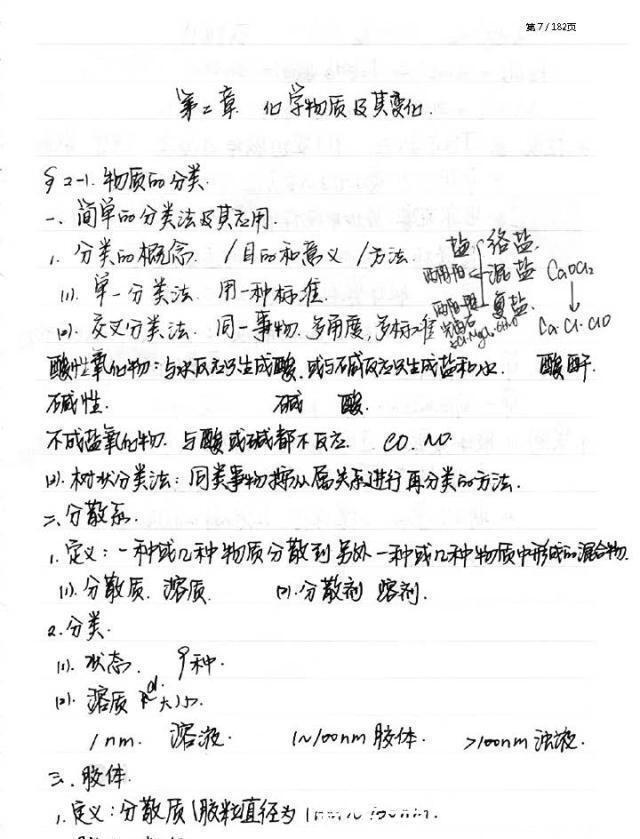 第7/182页
第二章 化学物质及其变化.
§2-1. 物质的分类.
一、简单的分类法及其应用.
1. 分类的概念 / 目的和意义 / 方法
(1). 单一分类法 用一种标准
(2). 交叉分类法 同一事物. 多角度, 多标准
盐 络盐.
混盐 CaOCl₂
复盐. Ca·Cl·ClO
酸性氧化物: 与水反应只生成酸, 或与碱反应只生成盐和水. 酸酐.
碱性. 碱 酸.
不成盐氧化物. 与酸或碱都不反应. CO. NO.
(3). 树状分类法: 同类事物按从属关系进行再分类的方法.
二、分散系.
1. 定义: 一种或几种物质分散到另外一种或几种物质中形成的混合物.
(1). 分散质. 溶质. (2). 分散剂 溶剂.
2. 分类.
(1). 状态. 9种.
(2). 溶质 d 大小.
1nm. 溶液. 1~100nm 胶体. >100nm 浊液.
三、胶体.
1. 定义: 分散质(胶粒直径为